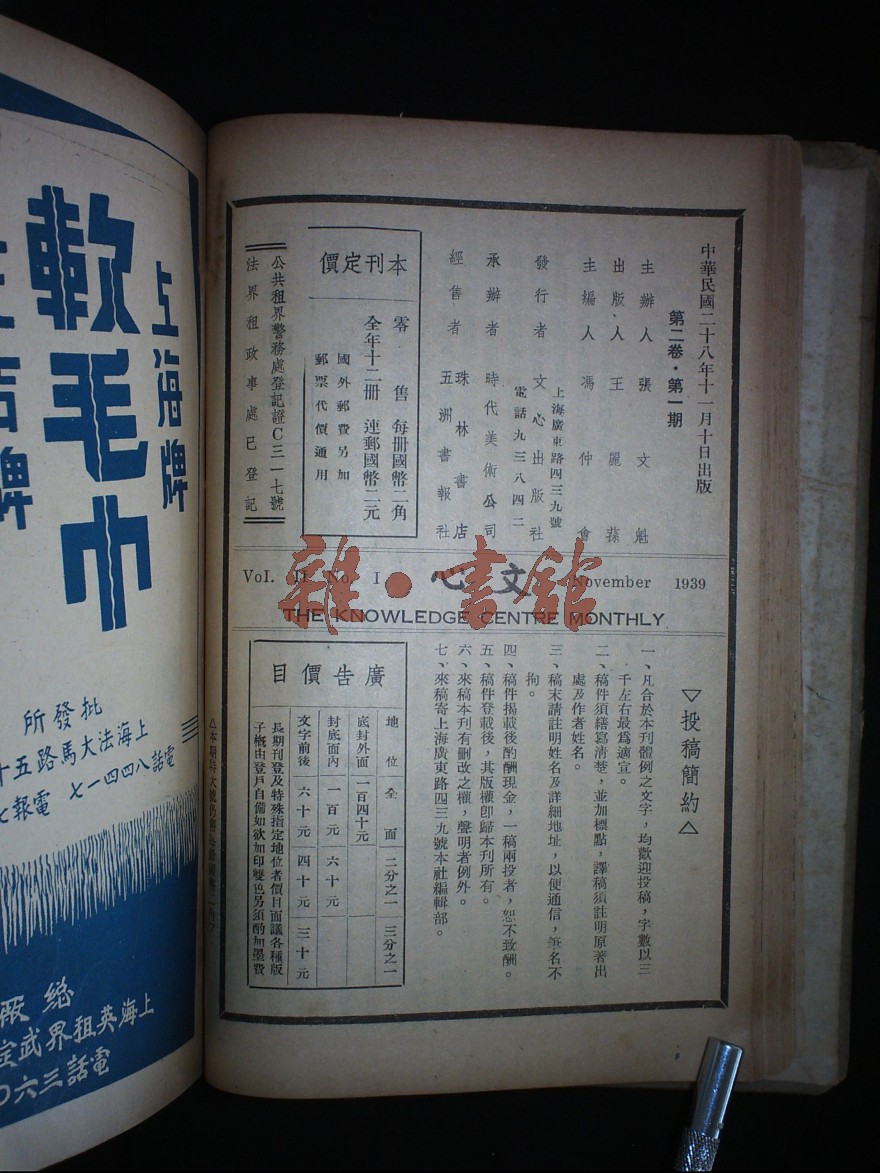 中華民國二十八年十一月十日出版
第二卷・第一期
主辦人 張文魁
出版人 王麗蓀
主編人 馮仲會
上海廣東路四三九號
發行者 文心出版社
電話九三八四二
承辦者 時代美術公司
經售者 珠林書店
五洲書報社
本刊定價
零售 每冊國幣二角
全年十二冊 連郵國幣二元
國外郵費另加
郵票代價通用
公共租界警務處登記證C三一七號
法界租政事處已登記
Vol. II No. I 文心 November 1939
THE KNOWLEDGE CENTRE MONTHLY
雜・書館
▽投稿簡約△
一、凡合於本刊體例之文字，均歡迎投稿，字數以三
千左右最為適宜。
二、稿件須繕寫清楚，並加標點，譯稿須註明原著出
處及作者姓名。
三、稿末請註明姓名及詳細地址，以便通信，筆名不
拘。
四、稿件揭載後酌酬現金，一稿兩投者，恕不致酬。
五、稿件登載後，其版權卽歸本刊所有。
六、來稿本刊有刪改之權，聲明者例外。
七、來稿寄上海廣東路四三九號本社編輯部。
廣告價目
地位 全面 二分之一 三分之一
底封外面 一百四十元
封底面內 一百元 六十元
文字前後 六十元 四十元 三十元
長期刊登及特殊指定地位者價目面議各種版
子概由登戶自備如欲加印雙色另須酌加墨費
上海牌
軟毛巾
批發所
上海法大馬路五十
電話八四四一七 電報七
總廠
上海英租界武定
電話三六〇